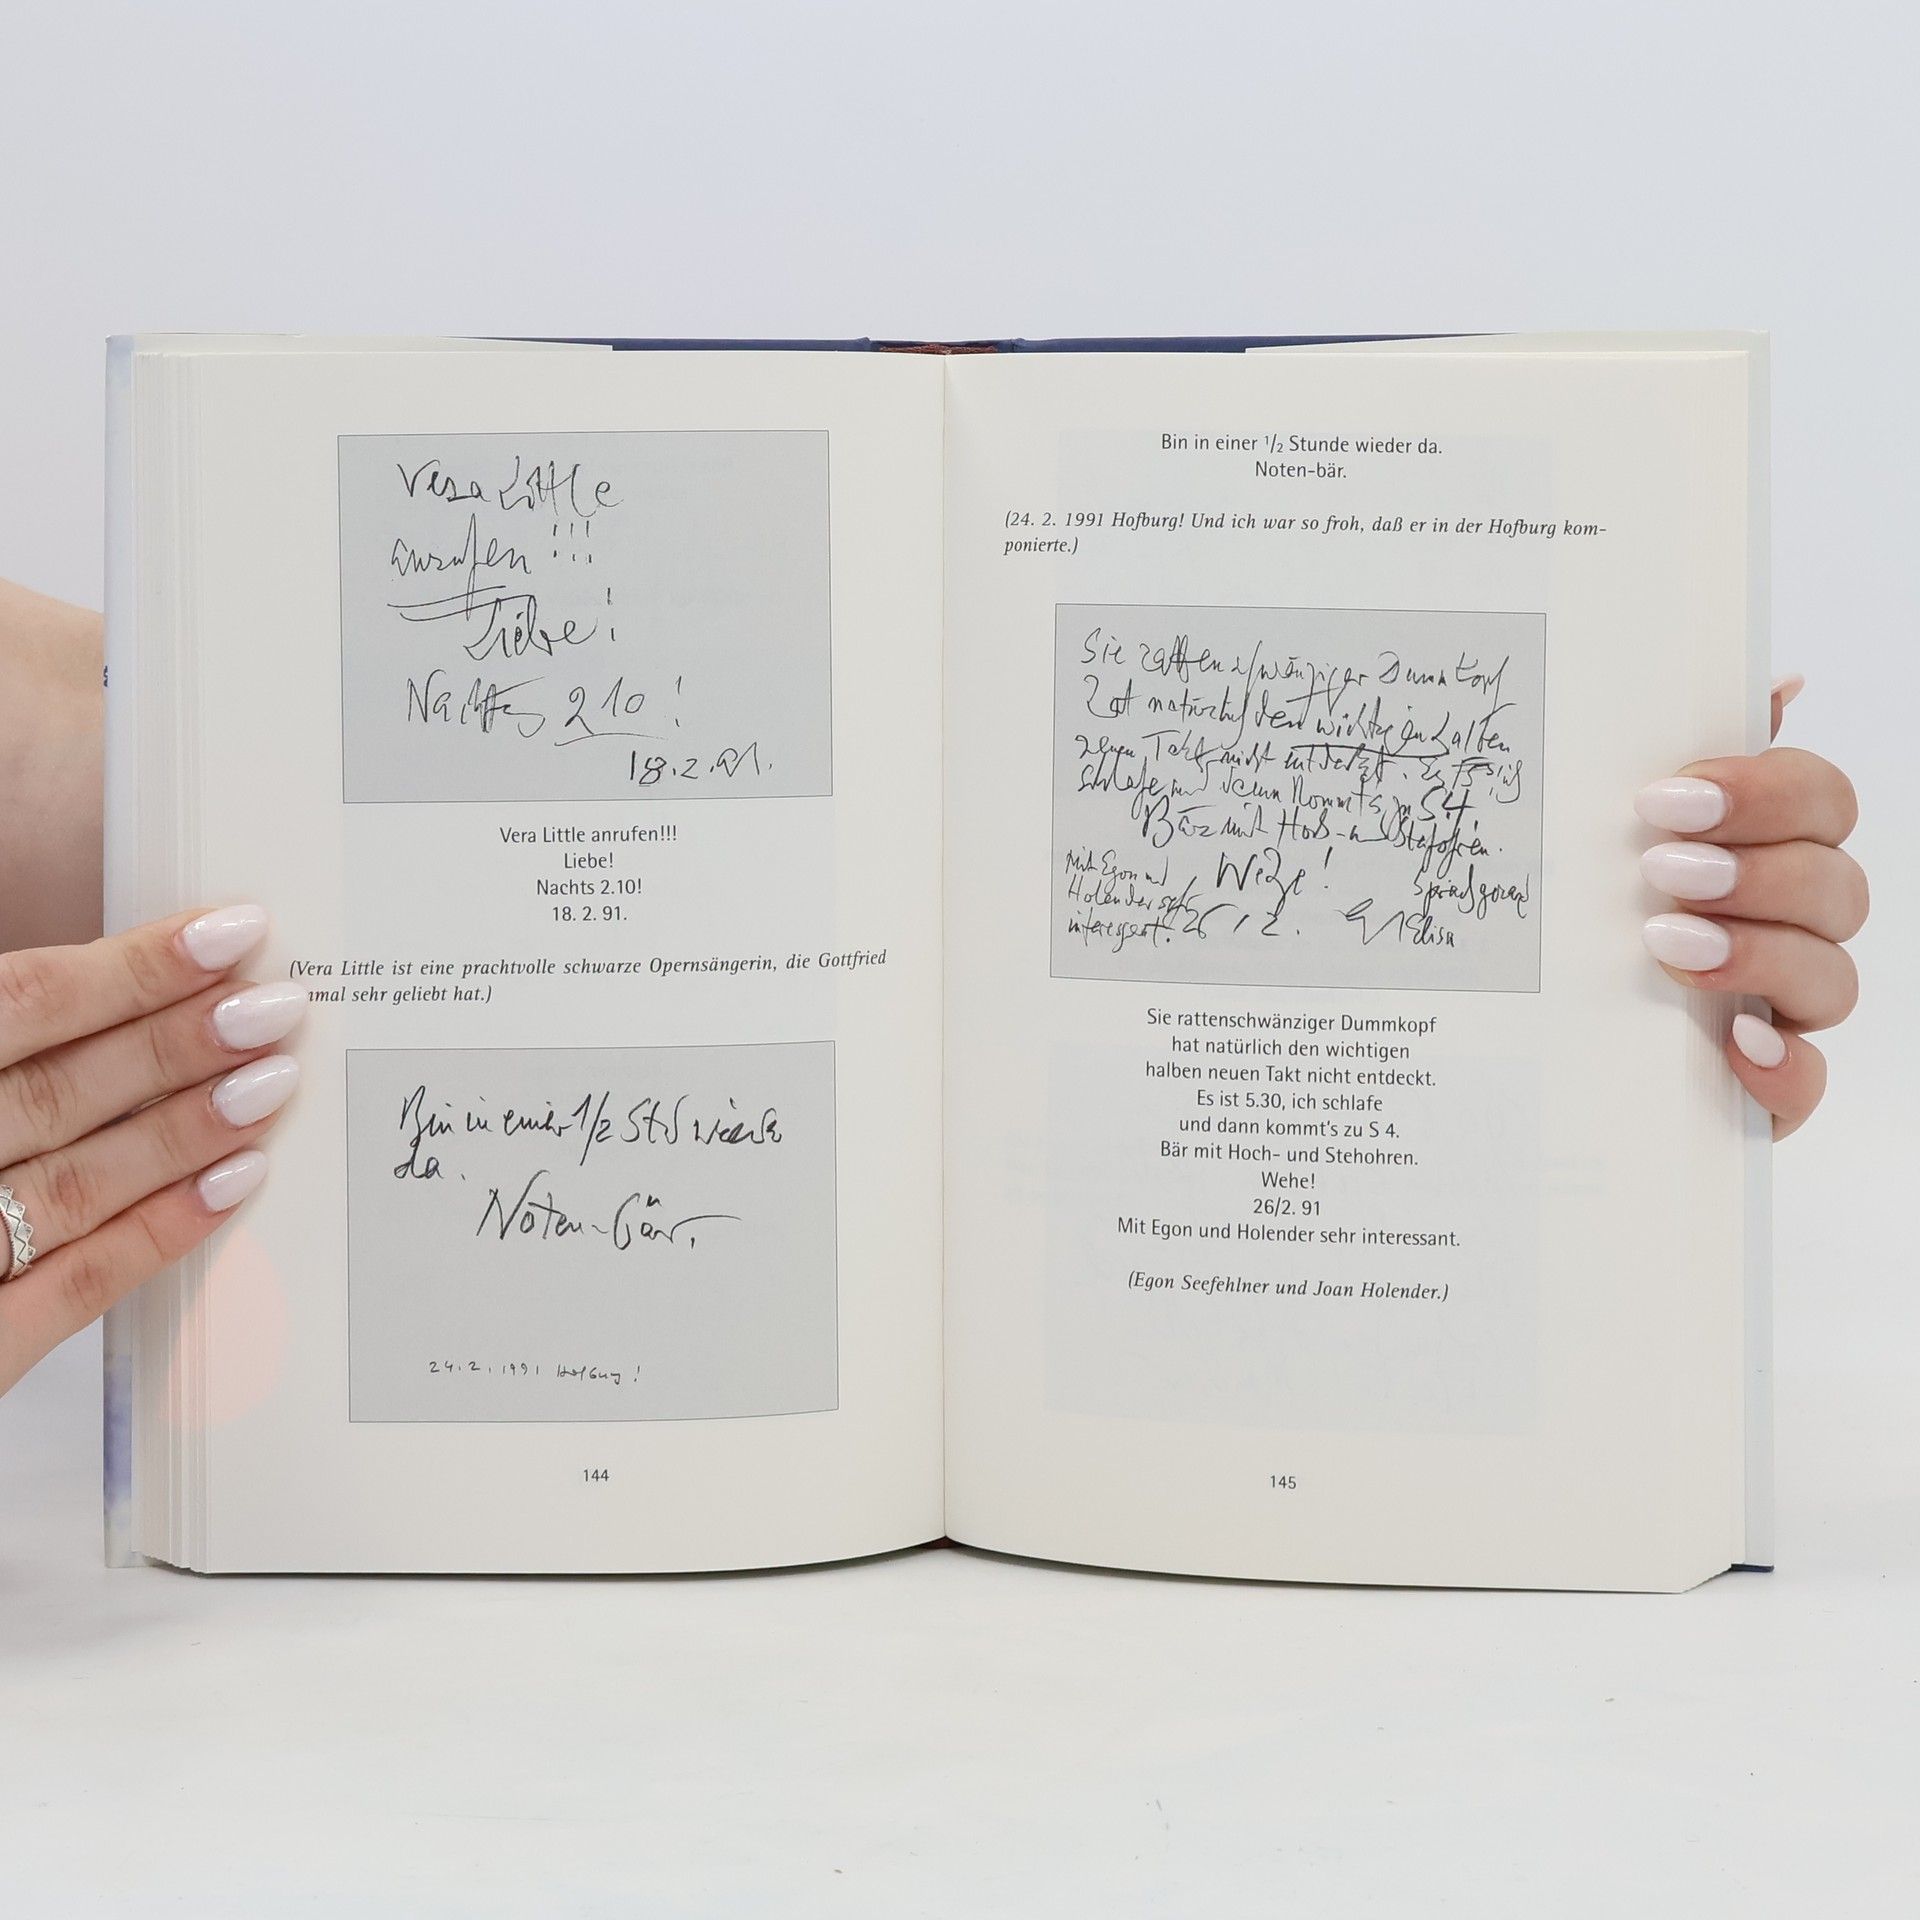 Vera Little
anrufen !!!
Liebe!
Nachts 2 10 !
18.2.91.
Vera Little anrufen!!!
Liebe!
Nachts 2.10!
18. 2. 91.
(Vera Little ist eine prachtvolle schwarze Opernsängerin, die Gottfried
mal sehr geliebt hat.)
Bin in einer 1/2 Std wieder
da.
Noten-bär.
24.2.1991 Hofburg !
144
Bin in einer 1/2 Stunde wieder da.
Noten-bär.
(24. 2. 1991 Hofburg! Und ich war so froh, daß er in der Hofburg kom-
ponierte.)
Sie rattenschwänziger Dummkopf
hat natürlich den wichtigen halben
neuen Takt nicht entdeckt. Es ist ich
schlafe und dann kommts zu S4.
Bär mit Hoch- und Stehohren.
Mit Egon und
Holender sehr
interessant.
Wehe!
26/2.
Elisa
Sie rattenschwänziger Dummkopf
hat natürlich den wichtigen
halben neuen Takt nicht entdeckt.
Es ist 5.30, ich schlafe
und dann kommt's zu S 4.
Bär mit Hoch- und Stehohren.
Wehe!
26/2. 91
Mit Egon und Holender sehr interessant.
(Egon Seefehlner und Joan Holender.)
145